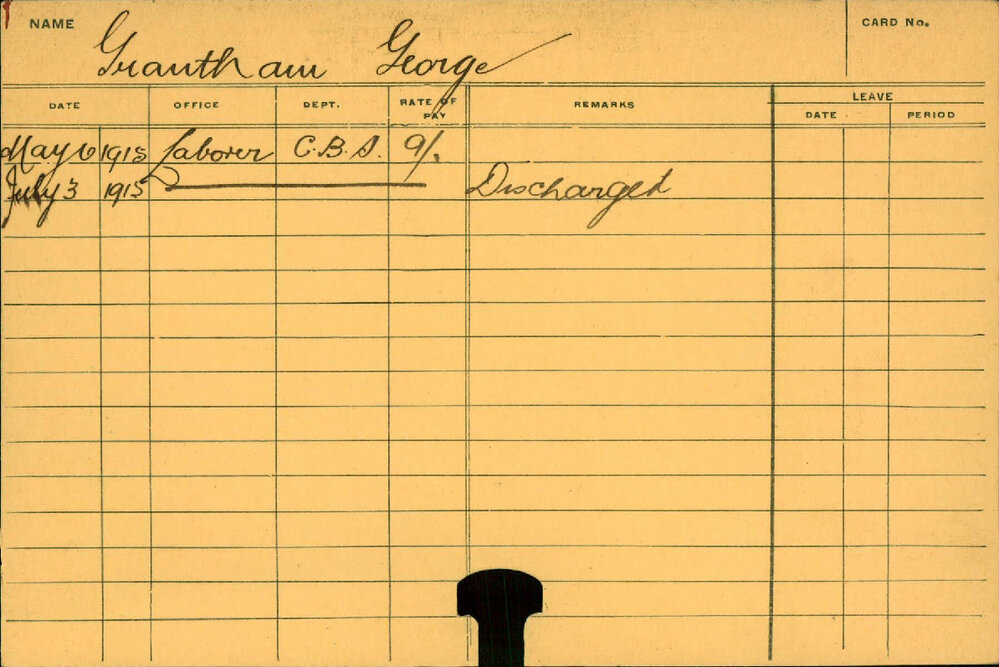 NAME Grantham George CARD No.
DATE OFFICE DEPT. RATE OF PAY REMARKS LEAVE
DATE PERIOD
May 6 1915 Laborer C.B.S. 9/.
July 3 1915 Discharged